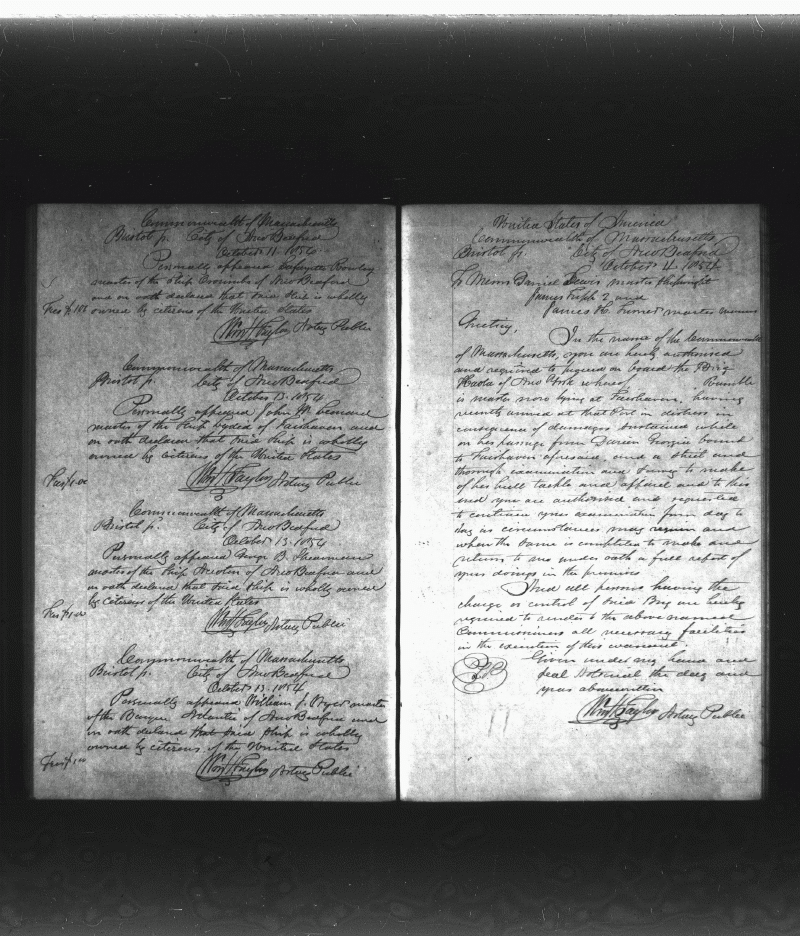 Commonwealth of Massachusetts
Bristol ss. City of New Bedford
October 11. 1854
Personally appeared Lafayette Rowley
master of the Ship of New Bedford
and on oath declared that said Ship is wholly
owned by citizens of the United States
Wm H Taylor Notary Public
Commonwealth of Massachusetts
Bristol ss. City of New Bedford
October 13. 1854
Personally appeared John M. Leonard
master of the Ship Lydia of Fairhaven and
on oath declared that said Ship is wholly
owned by citizens of the United States
Wm H Taylor Notary Public
Commonwealth of Massachusetts
Bristol ss. City of New Bedford
October 13. 1854
Personally appeared George B.
master of the Ship of New Bedford and
on oath declared that said Ship is wholly owned
by citizens of the United States
Wm H Taylor Notary Public
Commonwealth of Massachusetts
Bristol ss. City of New Bedford
October 13. 1854
Personally appeared William J. master
of the Barque Atlantic of New Bedford and
on oath declared that said Ship is wholly
owned by citizens of the United States
Wm H Taylor Notary Public
United States of America
Commonwealth of Massachusetts
Bristol ss City of New Bedford
October 4. 1854
To Messrs Daniel Lewis master shipwright
James Tripp 2 and
James H. Turner master mariners
Greeting,
In the name of the Commonwealth
of Massachusetts, you are hereby authorised
and required to repair on board the Brig
of New York whereof Rumble
is master now lying at Fairhaven, having
recently arrived at that Port in distress in
consequence of damages sustained while
on her passage from Darien Georgia bound
to Fairhaven aforesaid and a strict and
thorough examination and survey to make
of her hull tackle and apparel and to this
end you are authorised and requested
to continue your examination from day to
day as circumstances may require and
when the same is completed to make and
return to me under oath a full report of
your doings in the premises
And all persons having the
charge or control of said Brig are hereby
required to render to the above named
Commissioners all necessary facilities
in the execution of this warrant.
Given under my hand and
seal Notarial the day and
year abovewritten
Wm H Taylor Notary Public